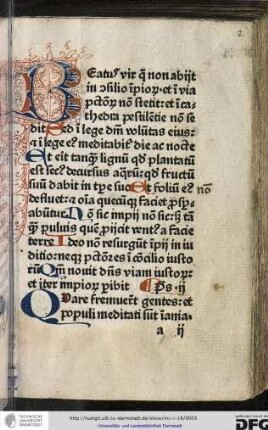 2
Beatꝰ vir q̃ non abijt
in ɔſilio īpioꝝ· et ī via
pctōꝝ nō ſtetit: et ī ca⸗
thedra peſtilētie nō ſe
dit Sed ī lege dm̄ volūtas eius:
⁊ ī lege eꝰ meditabiť die ac nocte
Et erit tanq̃ lignū qḋ plantatū
eſt ſecꝰ decurſus aqͣꝝ: qḋ fructū
ſuū dabit in tp̄e ſuo Et foliū eꝰ nō
defluet: ⁊ oīa quecūqꝫ faciet ꝓſp⸗
abūtur Nō ſic impij nō ſic: ſꝫ tā
q̃ puluis quē ꝓijcit ventꝰ a facie
terre Ideo nō reſurgūt īpij in iu
ditio: neqꝫ pctōres ī ɔcilio iuſto
rū Qm̄ nouit dn̄s viam iuſtoꝝ:
et iter impioꝝ ꝑibit Pſ· ij
Quare fremuert̄ gentes: et
populi meditati ſūt īania·
a ij
TECHNISCHE
UNIVERSITÄT
DARMSTADT
http://tudigit.ulb.tu-darmstadt.de/show/inc-i-18/0003
Universitäts- und Landesbibliothek Darmstadt
DFG